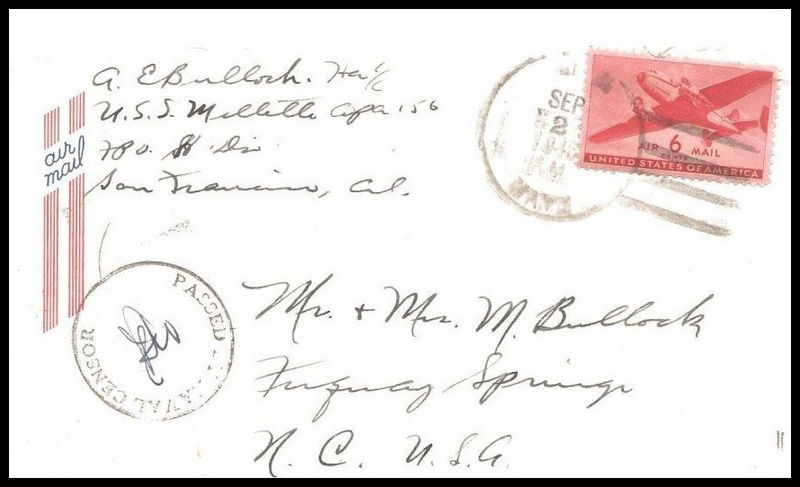 A. E Bullock. Ha 1/c
U.S.S. Mellette Apa 156
F.P.O. H Div
San Francisco, Cal.
air
mail
SEP
2
NAVY
AIR 6 MAIL
CENTS
UNITED STATES OF AMERICA
PASSED NAVAL CENSOR
Mr. + Mrs. M. Bullock
Fuquay Springs
N. C. U.S.A.